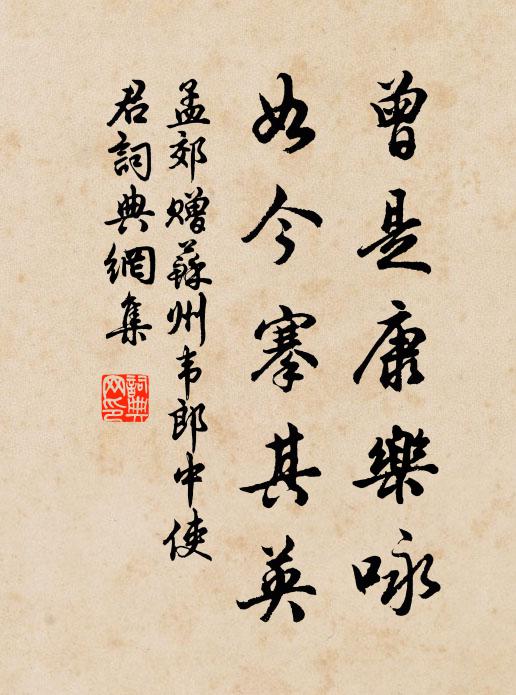 曾是康樂咏
如今搴其英
孟郊赠蘇州韦郎中使
君詞典網集
詞典网印